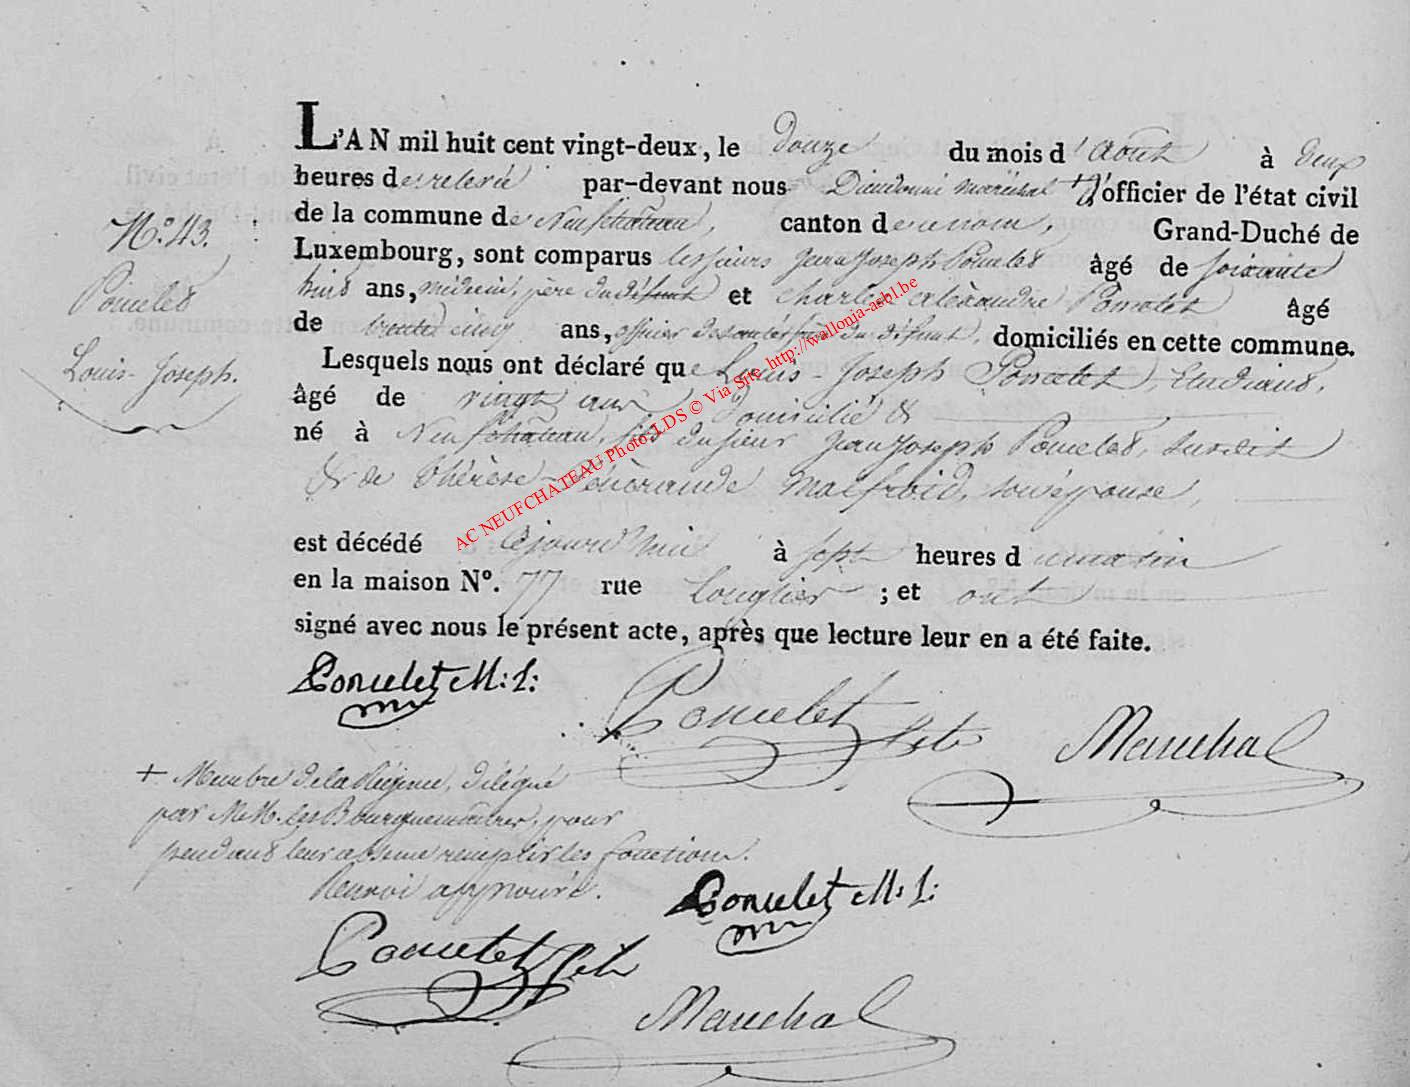 L'AN mil huit cent vingt-deux, le douze du mois d'Août à deux
heures de relevée par-devant nous Dieudonné Maréchal + l'officier de l'état civil
de la commune de Neufchateau, canton de ce nom, Grand-Duché de
Luxembourg, sont comparus les sieurs Jean Joseph Poncelet âgé de soixante
huit ans, médecin, père du défunt et Charles Alexandre Poncelet âgé
de trente cinq ans, officier de santé, frère du défunt, domiciliés en cette commune.
Lesquels nous ont déclaré que Louis Joseph Poncelet, étudiant,
âgé de vingt ans, domicilié &
né à Neufchateau, fils du sieur Jean Joseph Poncelet, susdit
& de Thérèse Malfroid, son épouse,
est décédé cejourd'hui à sept heures du matin
en la maison N°. 77 rue Longlier ; et ont
signé avec nous le présent acte, après que lecture leur en a été faite.
N.° 43.
Poncelet
Louis-Joseph.
Poncelet M: L:
Poncelet
Marechal
+ Membre de la Régence, délégué
par MM. les Bourguemaitres, pour
pendant leur absence remplir les fonctions.
Renvoi approuvé.
Poncelet M: L:
Poncelet
Marechal
AC NEUFCHATEAU Photo: LDS © Via Site http://wallonia-asbl.be